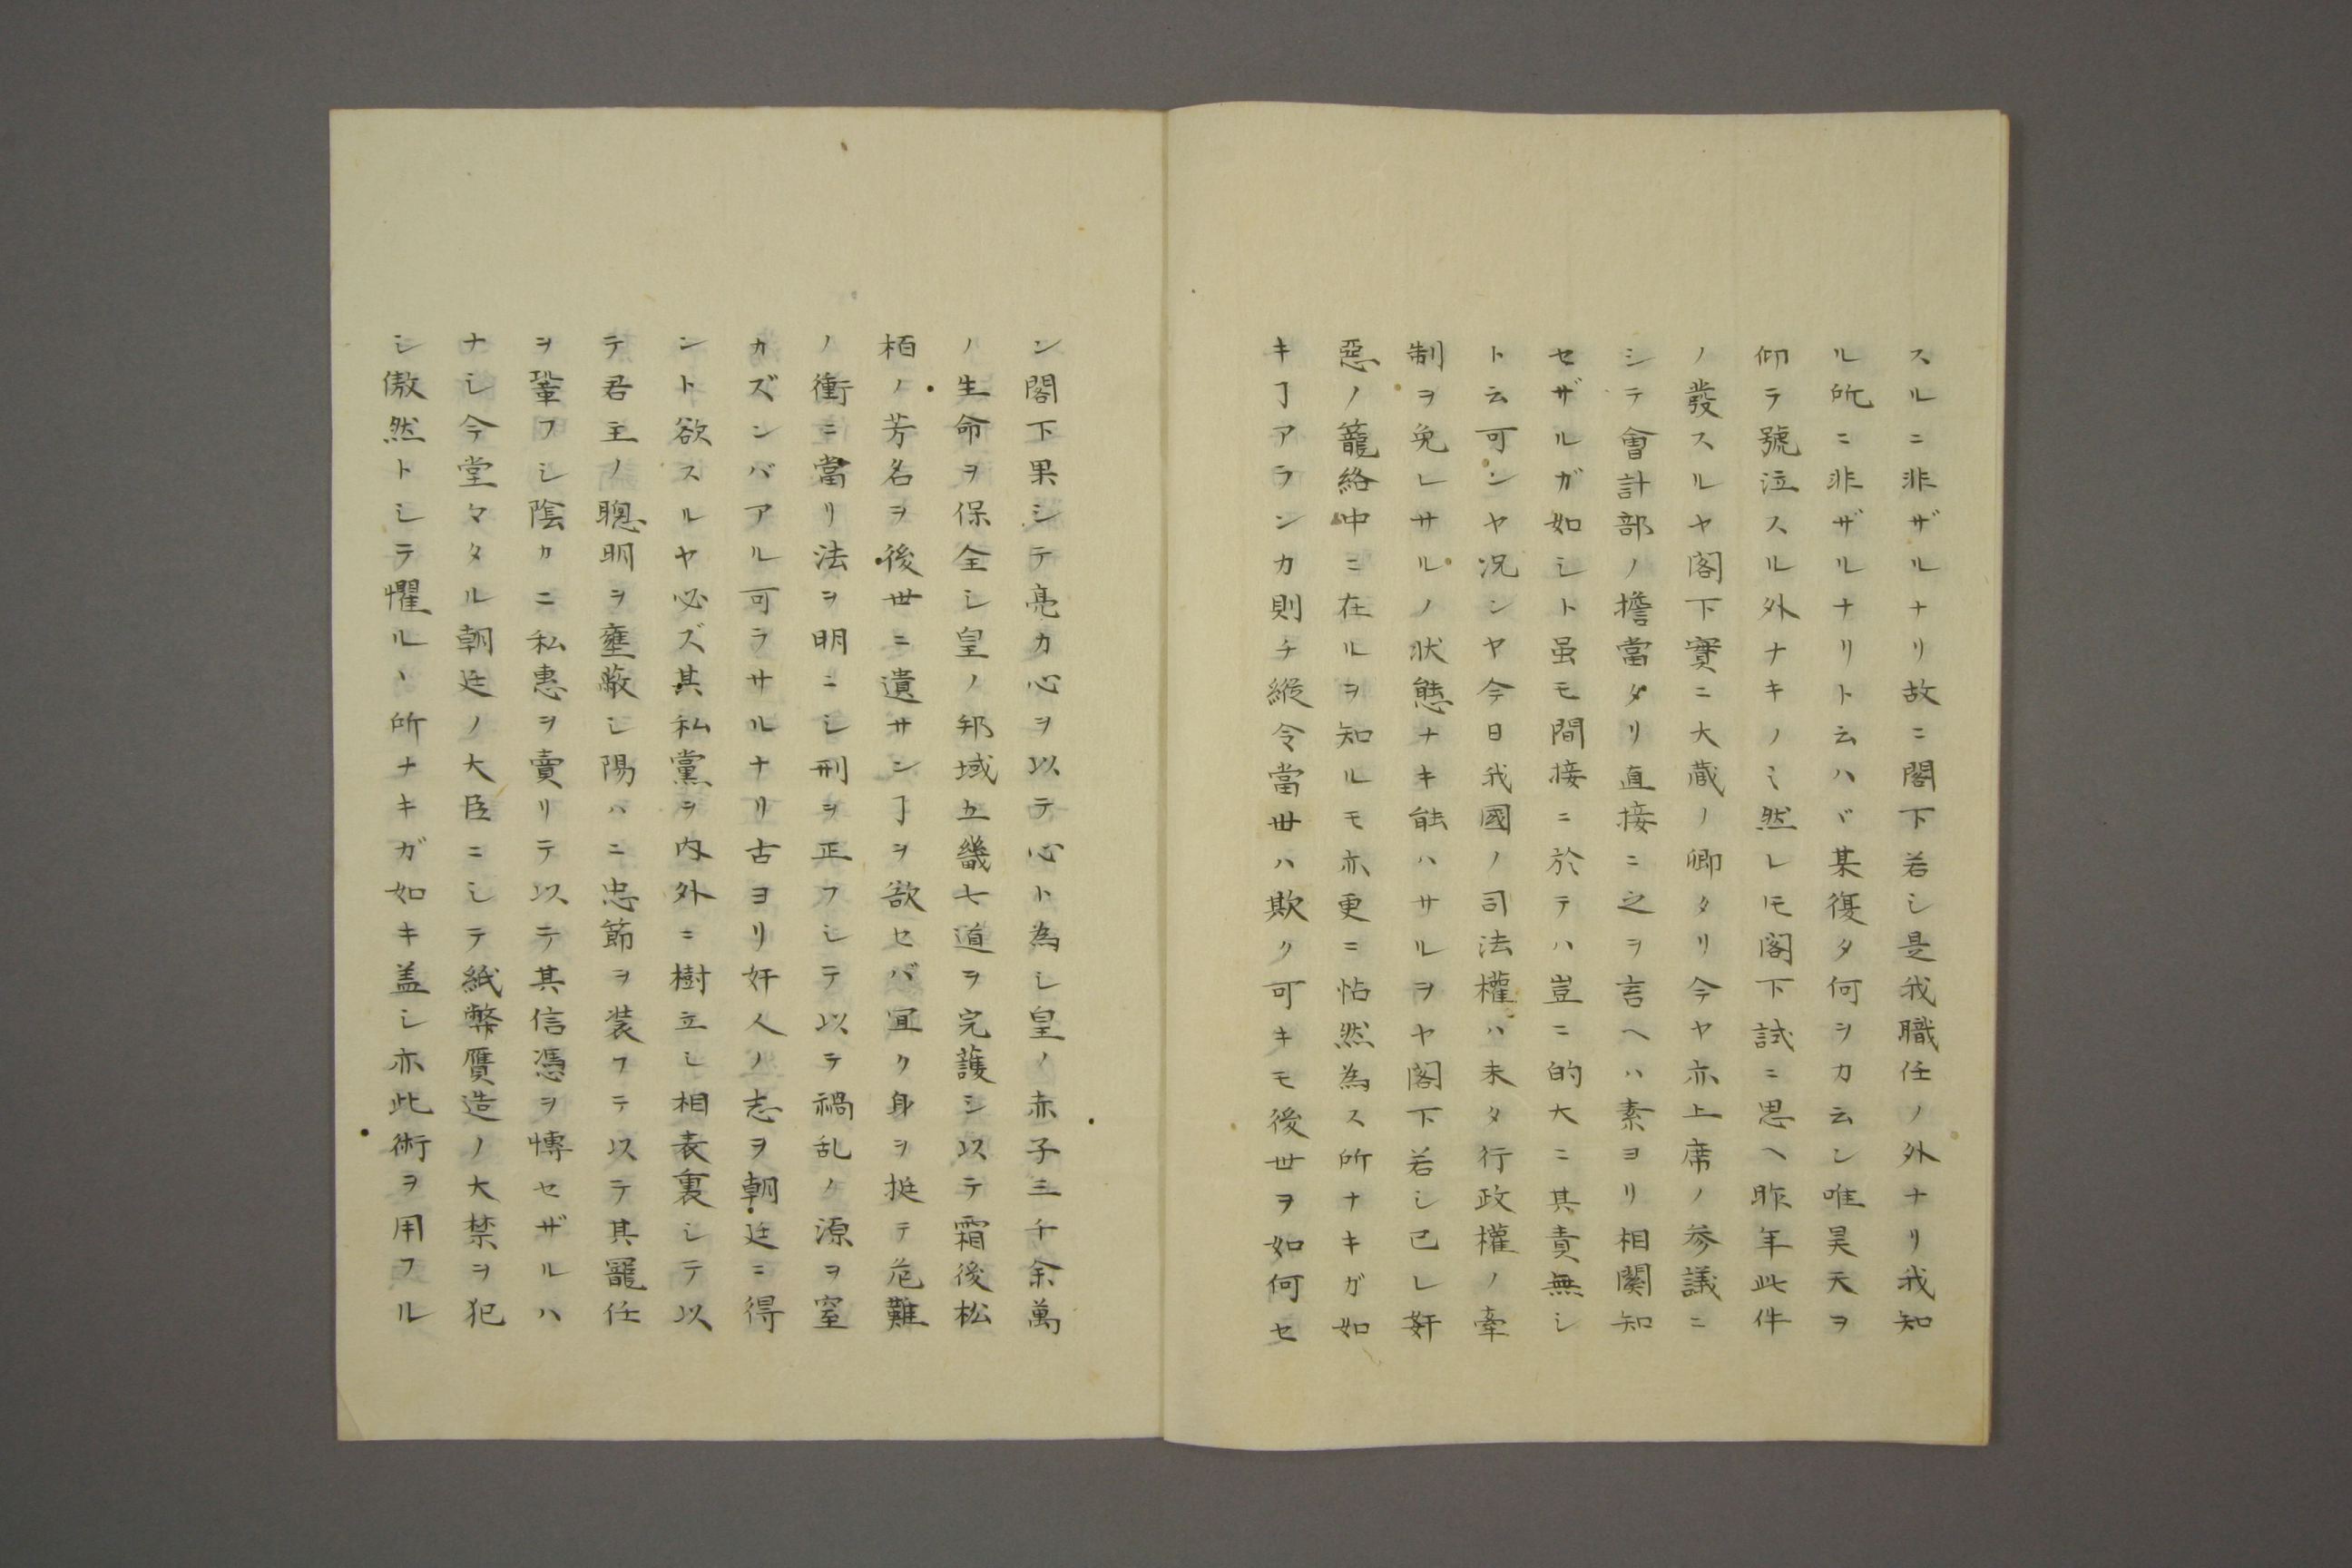 スルニ非ザルナリ故ニ閣下若シ是我職任ノ外ナリ我知
ル所ニ非ザルナリト云ハヾ某復タ何ヲカ云ン唯昊天ヲ
仰テ號泣スル外ナキノミ然レ𪜈閣下試ニ思ヘ昨年此件
ノ發スルヤ閣下實ニ大蔵ノ卿タリ今ヤ亦上席ノ参議ニ
シテ會計部ノ擔當タリ直接ニ之ヲ言ヘハ素ヨリ相関知
セザルガ如シト虽モ間接ニ於テハ豈ニ的大ニ其責無シ
ト云可ンヤ况ンヤ今日我國ノ司法權ハ未タ行政權ノ牽
制ヲ免レサルノ状態ナキ能ハサルヲヤ閣下若シ已レ奸
惡ノ籠絡中ニ在ルヲ知ルモ亦更ニ恬然為ス所ナキガ如
キヿアランカ則チ縦令當世ハ欺ク可キモ後世ヲ如何セ
ン閣下果シテ亮カ心ヲ以テ心ト為シ皇ノ赤子三千余萬
ノ生命ヲ保全シ皇ノ邦域五畿七道ヲ完護シ以テ霜後松
栢ノ芳名ヲ後世ニ遺サンヿヲ欲セバ宜ク身ヲ挺テ危難
ノ衝ニ當リ法ヲ明ニシ刑ヲ正フシテ以テ禍乱ノ源ヲ窒
カズンバアル可ラサルナリ古ヨリ奸人ノ志ヲ朝廷ニ得
ント欲スルヤ必ズ其私黨ヲ内外ニ樹立シ相表裏シテ以
テ君主ノ聰明ヲ壅蔽シ陽ハニ忠節ヲ装フテ以テ其寵任
ヲ鞏フシ陰カニ私惠ヲ賣リテ以テ其信憑ヲ博セザルハ
ナシ今堂々タル朝廷ノ大臣ニシテ紙幣贋造ノ大禁ヲ犯
シ傲然トシテ懼ルヽ所ナキガ如キ盖シ亦此術ヲ用フル